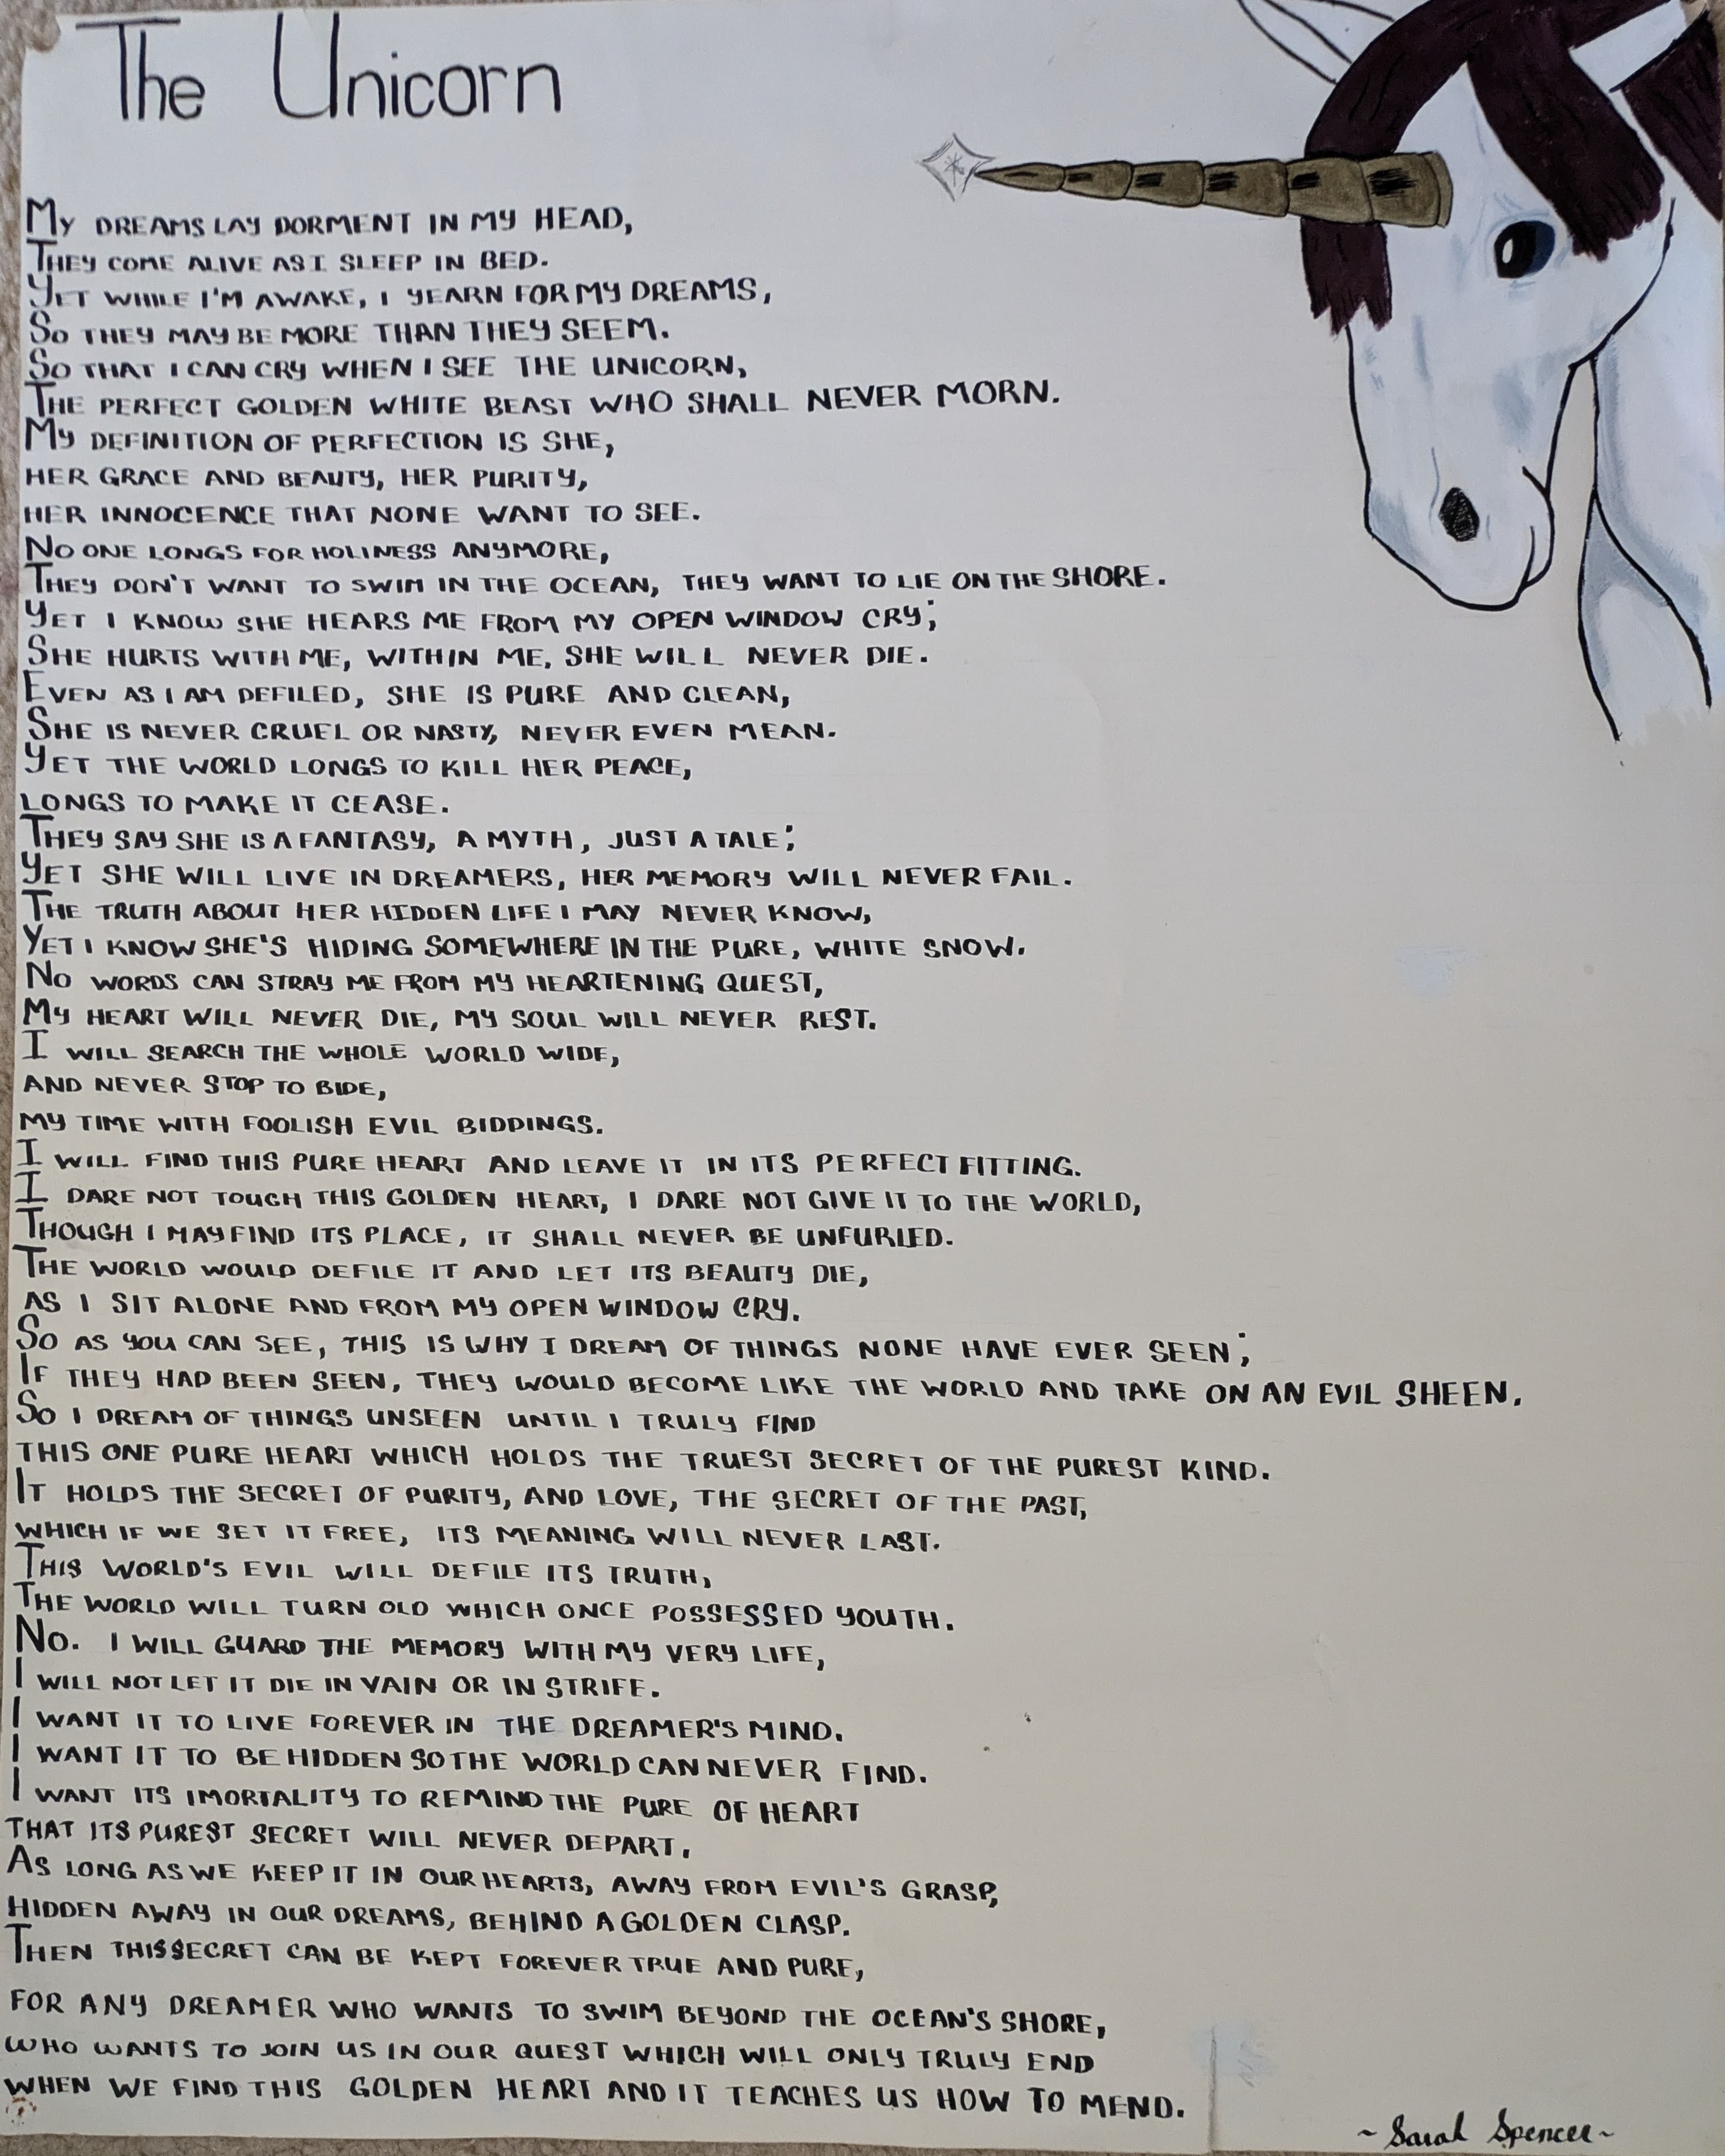 The Unicorn
My DREAMS LAY DORMENT IN MY HEAD,
THEY COME ALIVE AS I SLEEP IN BED.
YET WHILE I'M AWAKE, I YEARN FOR MY DREAMS,
SO THEY MAY BE MORE THAN THEY SEEM.
SO THAT I CAN CRY WHEN I SEE THE UNICORN,
THE PERFECT GOLDEN WHITE BEAST WHO SHALL NEVER MORN.
MY DEFINITION OF PERFECTION IS SHE,
HER GRACE AND BEAUTY, HER PURITY,
HER INNOCENCE THAT NONE WANT TO SEE.
NO ONE LONGS FOR HOLINESS ANYMORE,
THEY DON'T WANT TO SWIM IN THE OCEAN, THEY WANT TO LIE ON THE SHORE.
YET I KNOW SHE HEARS ME FROM MY OPEN WINDOW CRY;
SHE HURTS WITH ME, WITHIN ME, SHE WILL NEVER DIE.
EVEN AS I AM DEFILED, SHE IS PURE AND CLEAN,
SHE IS NEVER CRUEL OR NASTY, NEVER EVEN MEAN.
YET THE WORLD LONGS TO KILL HER PEACE,
LONGS TO MAKE IT CEASE.
THEY SAY SHE IS A FANTASY, A MYTH, JUST A TALE;
YET SHE WILL LIVE IN DREAMERS, HER MEMORY WILL NEVER FAIL.
THE TRUTH ABOUT HER HIDDEN LIFE I MAY NEVER KNOW,
YET I KNOW SHE'S HIDING SOMEWHERE IN THE PURE, WHITE SNOW.
NO WORDS CAN STRAY ME FROM MY HEARTENING QUEST,
MY HEART WILL NEVER DIE, MY SOUL WILL NEVER REST.
I WILL SEARCH THE WHOLE WORLD WIDE,
AND NEVER STOP TO BIDE,
MY TIME WITH FOOLISH EVIL BIDDINGS.
I WILL FIND THIS PURE HEART AND LEAVE IT IN ITS PERFECT FITTING.
I DARE NOT TOUGH THIS GOLDEN HEART, I DARE NOT GIVE IT TO THE WORLD,
THOUGH I MAY FIND ITS PLACE, IT SHALL NEVER BE UNFURLED.
THE WORLD WOULD DEFILE IT AND LET ITS BEAUTY DIE,
AS I SIT ALONE AND FROM MY OPEN WINDOW CRY.
SO AS YOU CAN SEE, THIS IS WHY I DREAM OF THINGS NONE HAVE EVER SEEN;
IF THEY HAD BEEN SEEN, THEY WOULD BECOME LIKE THE WORLD AND TAKE ON AN EVIL SHEEN.
SO I DREAM OF THINGS UNSEEN UNTIL I TRULY FIND
THIS ONE PURE HEART WHICH HOLDS THE TRUEST SECRET OF THE PUREST KIND.
IT HOLDS THE SECRET OF PURITY, AND LOVE, THE SECRET OF THE PAST,
WHICH IF WE SET IT FREE, ITS MEANING WILL NEVER LAST.
THIS WORLD'S EVIL WILL DEFILE ITS TRUTH,
THE WORLD WILL TURN OLD WHICH ONCE POSSESSED YOUTH.
NO. I WILL GUARD THE MEMORY WITH MY VERY LIFE,
I WILL NOT LET IT DIE IN VAIN OR IN STRIFE.
I WANT IT TO LIVE FOREVER IN THE DREAMER'S MIND.
I WANT IT TO BE HIDDEN SO THE WORLD CAN NEVER FIND.
I WANT ITS IMORTALITY TO REMIND THE PURE OF HEART
THAT ITS PUREST SECRET WILL NEVER DEPART,
AS LONG AS WE KEEP IT IN OUR HEARTS, AWAY FROM EVIL'S GRASP,
HIDDEN AWAY IN OUR DREAMS, BEHIND A GOLDEN CLASP.
THEN THIS SECRET CAN BE KEPT FOREVER TRUE AND PURE,
FOR ANY DREAMER WHO WANTS TO SWIM BEYOND THE OCEAN'S SHORE,
WHO WANTS TO JOIN US IN OUR QUEST WHICH WILL ONLY TRULY END
WHEN WE FIND THIS GOLDEN HEART AND IT TEACHES US HOW TO MEND.
~Sarah Spencer~